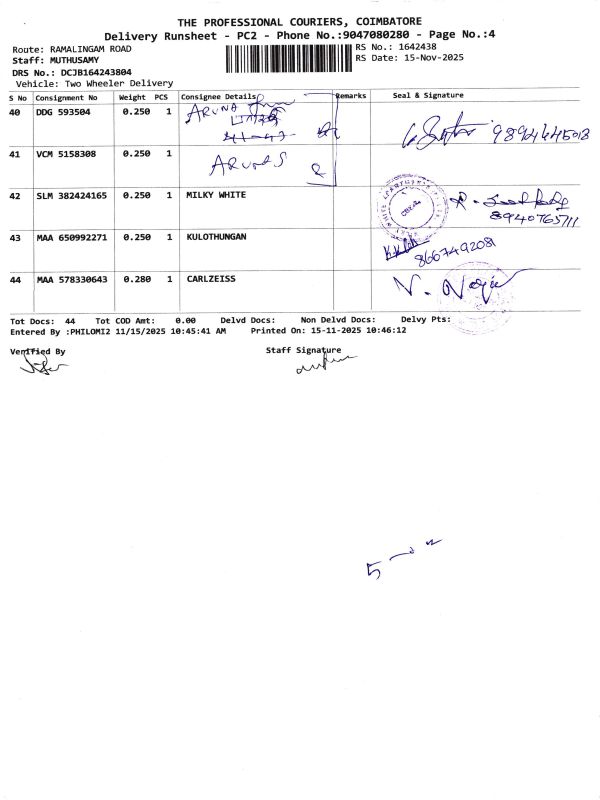 THE PROFESSIONAL COURIERS, COIMBATORE
Delivery Runsheet - PC2 - Phone No.:9047080280 - Page No.:4
Route: RAMALINGAM ROAD RS No.: 1642438
Staff: MUTHUSAMY RS Date: 15-Nov-2025
DRS No.: DCJB164243804
Vehicle: Two Wheeler Delivery
S No Consignment No Weight PCS Consignee Details Remarks Seal & Signature
40 DDG 593504 0.250 1 ARUNA 9894445013
41 VCM 5158308 0.250 1
42 SLM 382424165 0.250 1 MILKY WHITE
8940765711
43 MAA 650992271 0.250 1 KULOTHUNGAN 8667749208
44 MAA 578330643 0.280 1 CARLZEISS
Tot Docs: 44 Tot COD Amt: 0.00 Delvd Docs: Non Delvd Docs: Delvy Pts:
Entered By :PHILOMI2 11/15/2025 10:45:41 AM Printed On: 15-11-2025 10:46:12
Verified By Staff Signature